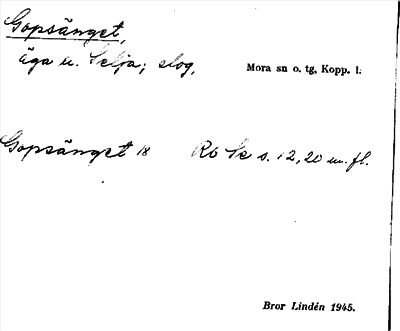 Gopsänget,
äga u. Selja; slog.
Mora sn o. tg, Kopp. l.
Gopsänget 18 Rb Sc s. 12, 20 m. fl.
Bror Lindén 1945.